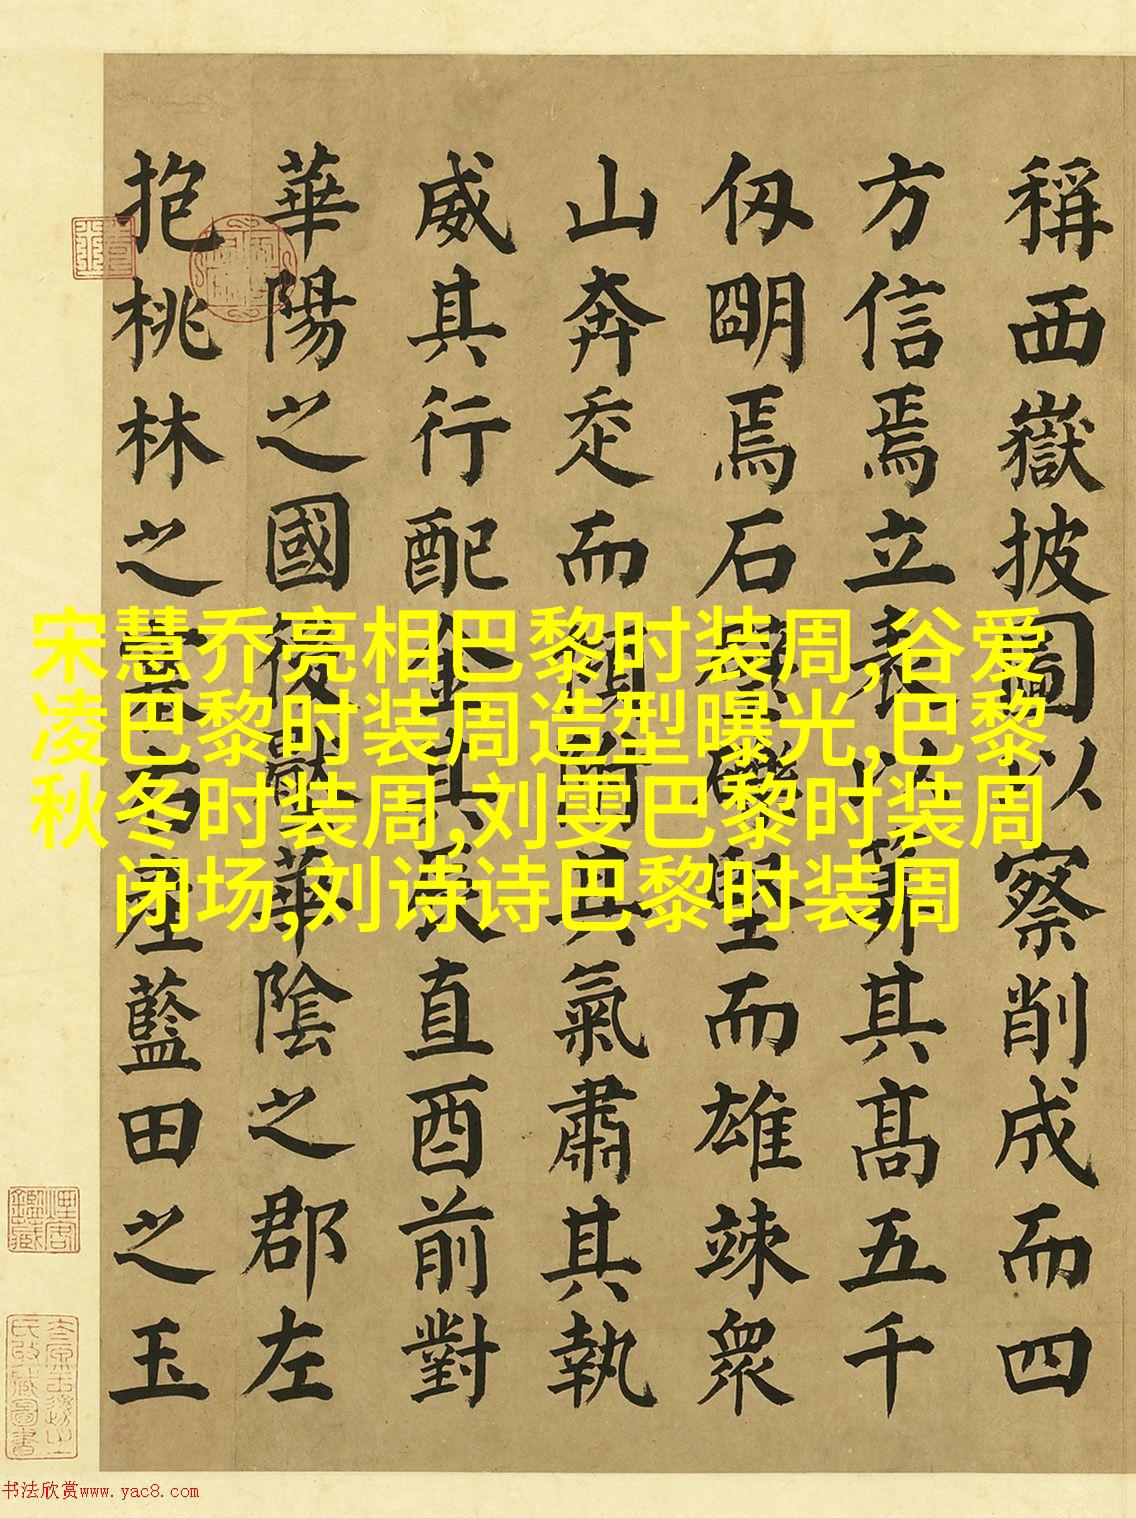 稱西嶽披圖以察削成而四
方信焉立表以其髙五千
仭朙焉石而雄竦衆
山奔走而其氣肅其執
威其行配金其辰直酉前對
華陽之國後獻華陰之郡左
抱桃林之塞右產藍田之玉
宋慧乔亮相巴黎时装周,谷爱
凌巴黎时装周造型曝光,巴黎
秋冬时装周,刘雯巴黎时装周
闭场,刘诗诗巴黎时装周
书法欣赏www.yac8.com